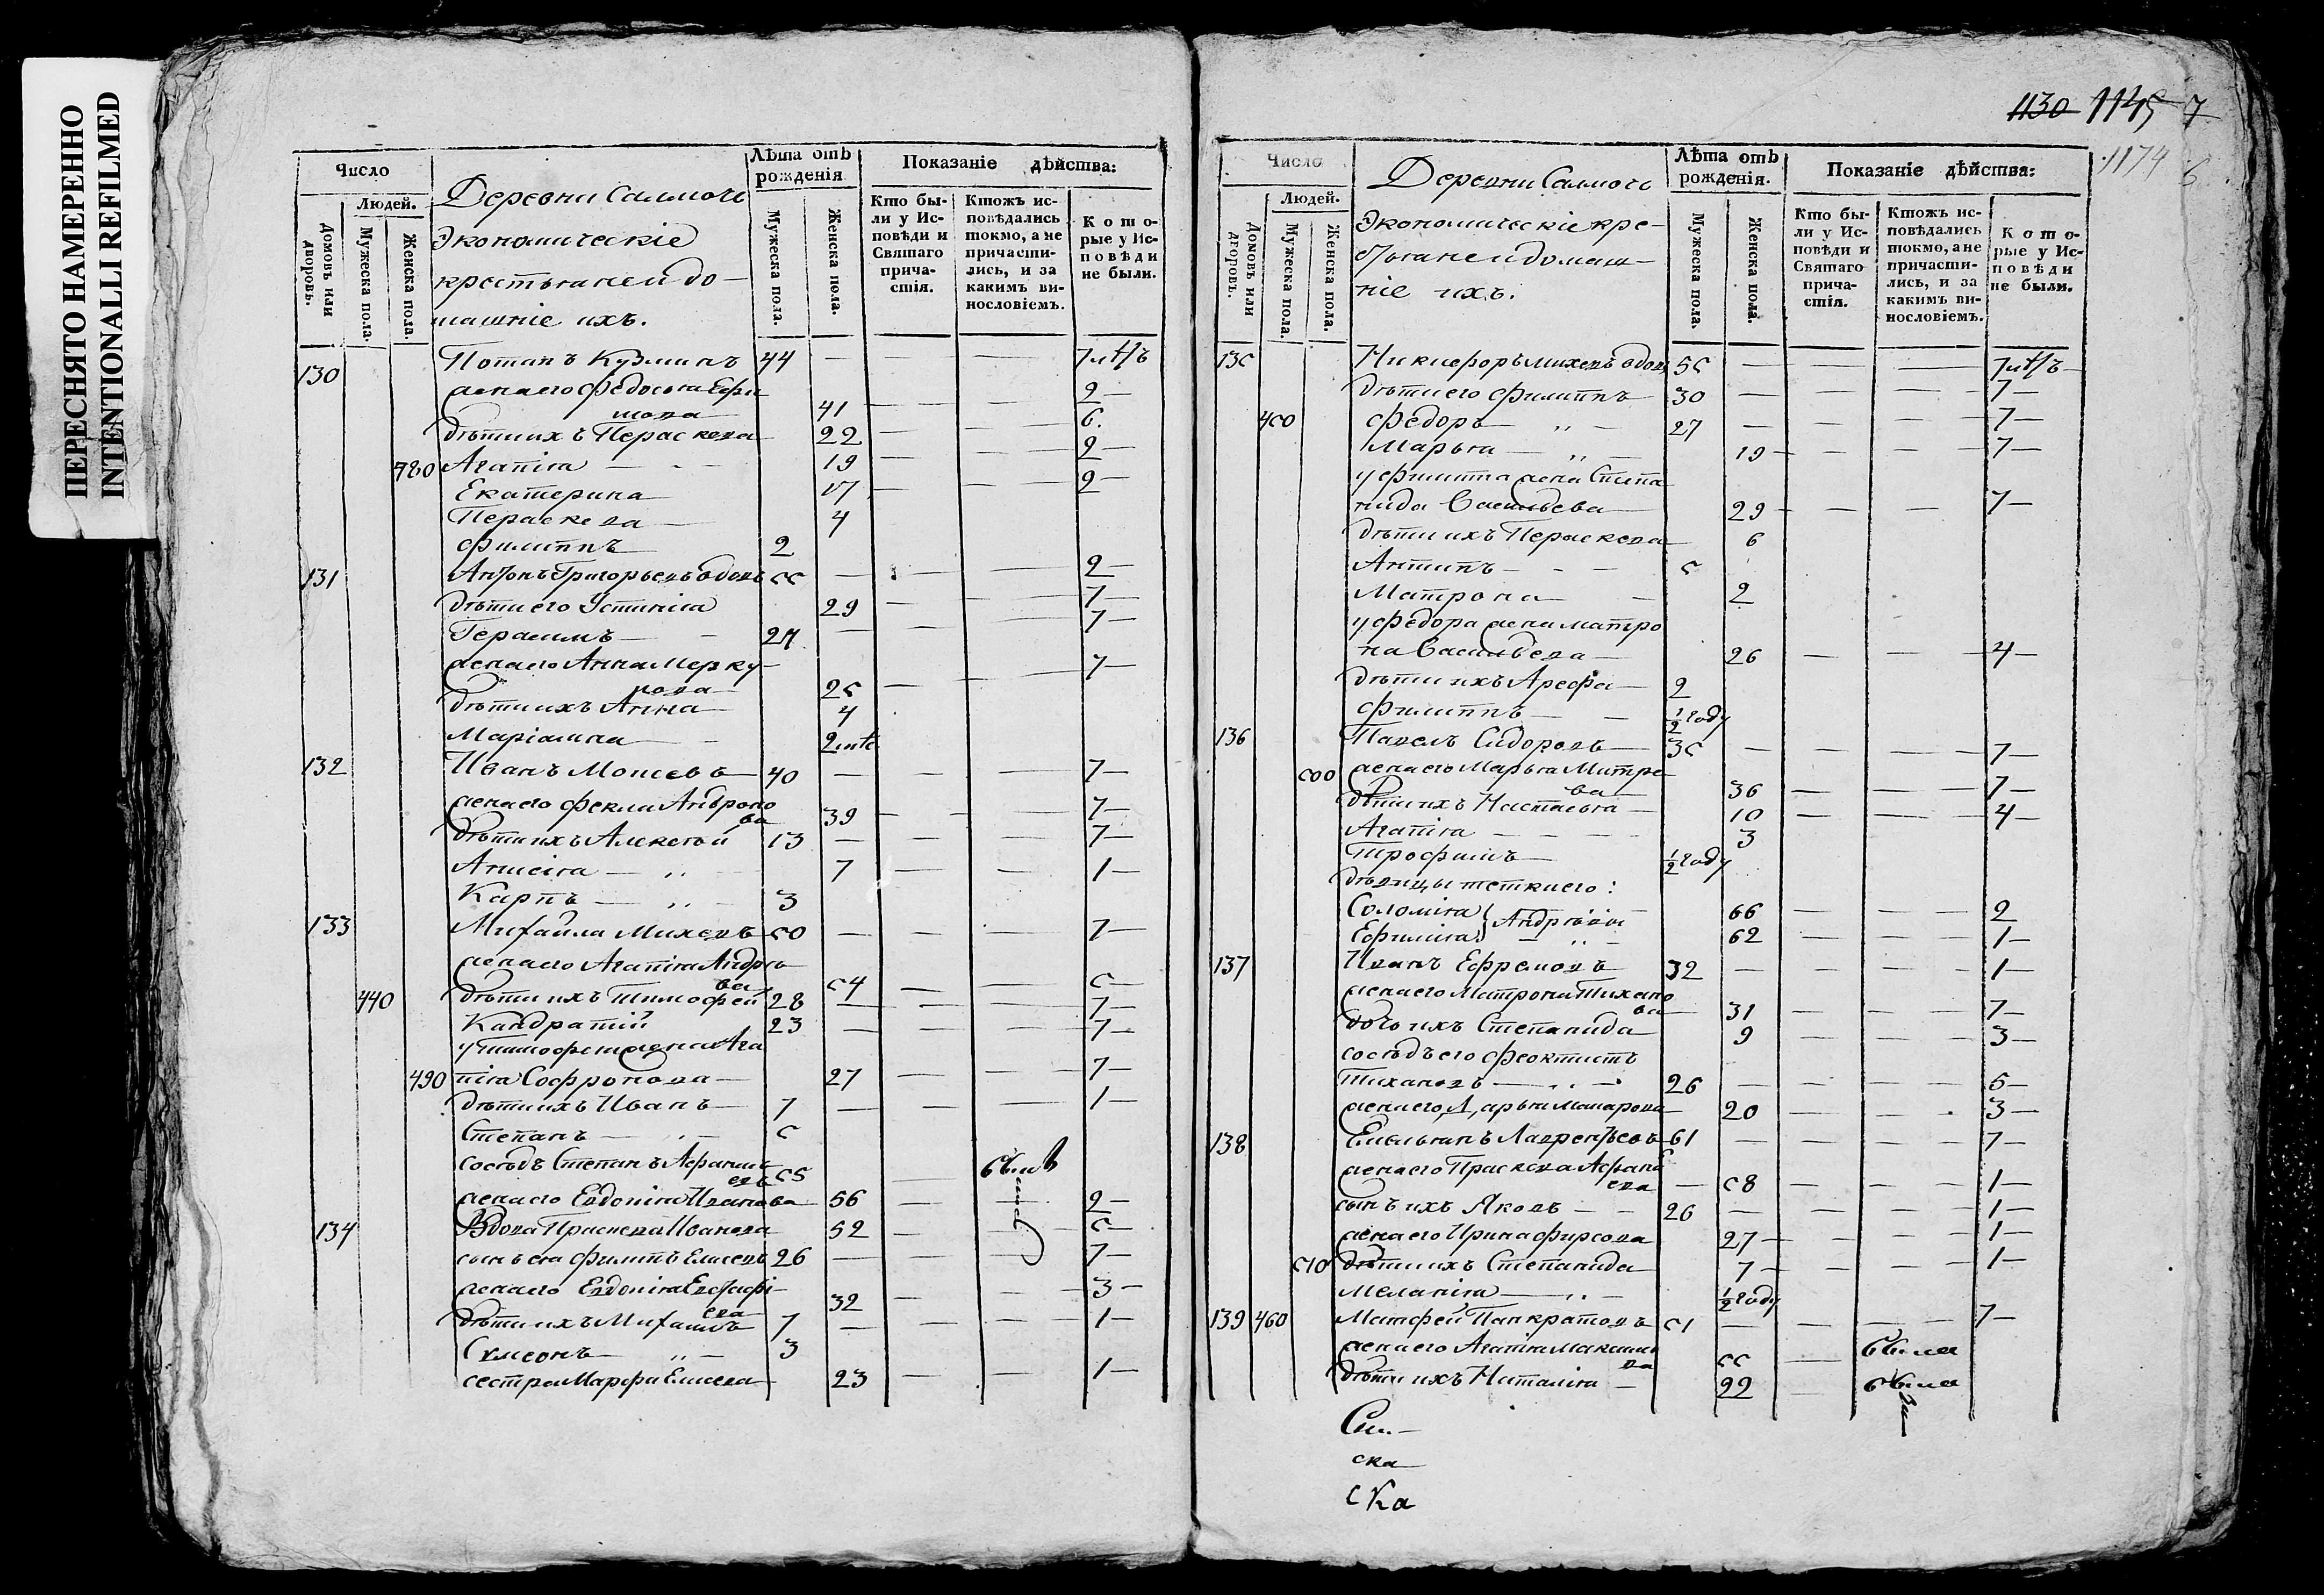 ПЕРЕСНЯТО НАМЕРЕННО
INTENTIONALLI REFILMED
Число
Людей.
Домовъ или дворовъ.
Мужеска пола.
Женска пола.
Деревни
Экономическіе
крестьяне и до-
машніе ихъ.
Лѣта отъ рожденія
Мужеска пола.
Женска пола.
Показаніе дѣйства:
Кто бы-
ли у Ис-
повѣди и
Святаго
прича-
стія.
Ктожъ ис-
повѣдались
токмо, а не
причасти-
лись, и за
какимъ ви-
нословіемъ.
Кото-
рые у Ис-
повѣди
не были.
130 Потапъ Кузминъ 44 — —
жена его Федосья Ефи
мова 41 — — 2 —
дѣти ихъ Пераскева 22 — — 6.
480 Агапія — 19 — — 2 —
Екатерина 17 — — 2 —
Пераскева — 4
Филиппъ 2
131 Антонъ Григорьевъ вдовъ 55 — — 2 —
дѣти его Устинія 29 — — 7 —
Герасимъ — 27 — — 7 —
жена его Анна Мерку-
лова 25 — — 7 —
дѣти ихъ Анна 4
Маріамна — 2
132 Иванъ Моисеевъ 40 — — — 7 —
жена его Фекла Андроно
ва 39 — — 7 —
дѣти ихъ Алексѣй 13 — — — 7 —
Анисія — „ — 7 — — 1 —
Карпъ — „ — 3
133 Михайла Михеевъ 50 — — — 7 —
жена его Агапія Андрѣе
ва 54 — — 5 —
440 дѣти ихъ Тимофей 28 — — — 7 —
Кандратій 23 — — — 7 —
у Тимофея жена Ага
490 пія Софронова — 27 — — 7 —
дѣти ихъ Иванъ 7 — — — 1 —
Степанъ — „ — 5
сосѣдъ Степанъ Афанась
евъ 55 —
жена его Евдокія Иванова 56 — — 2 —
134 Вдова Праскева Иванова 52 — — 5 —
сынъ ея Филипъ Елисеевъ 26 — — 7 —
жена его Евдокія
ева 32 — — 3 —
дѣти ихъ Михаилъ 7 — — — 1 —
Сѵмеонъ — „ — 3
сестра Марфа Елисеева 23 — — 1 —
1130 1145 7
1174 6
Число
Людей.
Домовъ или дворовъ.
Мужеска пола.
Женска пола.
Деревни
Экономическіе кре-
стьяне и домаш-
ніе ихъ.
Лѣта отъ рожденія.
Мужеска пола.
Женска пола.
Показаніе дѣйства:
Кто бы-
ли у Ис-
повѣди и
Святаго
прича-
стія.
Ктожъ ис-
повѣдались
токмо, а не
причасти-
лись, и за
какимъ ви-
нословіемъ.
Кото-
рые у Ис-
повѣди
не были.
135 Никифоръ Михеевъ вдовъ 55 — — —
дѣти его Филиппъ 30 — — — 7 —
450 Федоръ — „ — 27 — — — 7 —
Марья — „ — 19 — — — 7 —
у Филиппа жена Степа
нида Васильева 29 — — — 7 —
дѣти ихъ Пераскева 6
Антипъ — - — 5
Матрона — 2
у Федора жена Матро
на Васильева — 26 — — 4 —
дѣти ихъ Арефа — 2
Филиппъ — — 1/2 году
136 Павелъ Сидоровъ 35 — — — 7 —
500 жена его Марья Митре
ва 36 — — 7 —
дѣти ихъ Настасья — 10 — — 4 —
Агапія — — 3
Трофимъ — 1/2 году
дѣвицы тетки его:
Соломія 66 — — — 2
Ефимія Андрѣевы 62 — — — 1 —
137 Иванъ Ефремовъ 32 — — — 1 —
жена его Матрона Тихано
ва 31 — — — 7 —
дочь ихъ Степанида 9 — — — 3 —
сосѣдъ его Феоктистъ
Тихановъ — „ — 26 — — — 5 —
жена его Дарья Макарова 20 — — 3 —
138 Емельянъ Лаврентьевъ 61 — — — 7 —
жена его Праскева Афанась
ева — 58 — — — 1 —
сынъ ихъ Яковъ — — 26 — — — 1 —
жена его Ирина Фирсова 27 — — — 1 —
510 дѣти ихъ Степанида 7 — — — 1 —
Меланія — „ — 1/2 году
139 460 Матфей Панкратовъ 51 — — — 7 —
жена его Агапія Максимо
ва 55 —
дѣти ихъ Наталія — 22 —
ска
ска